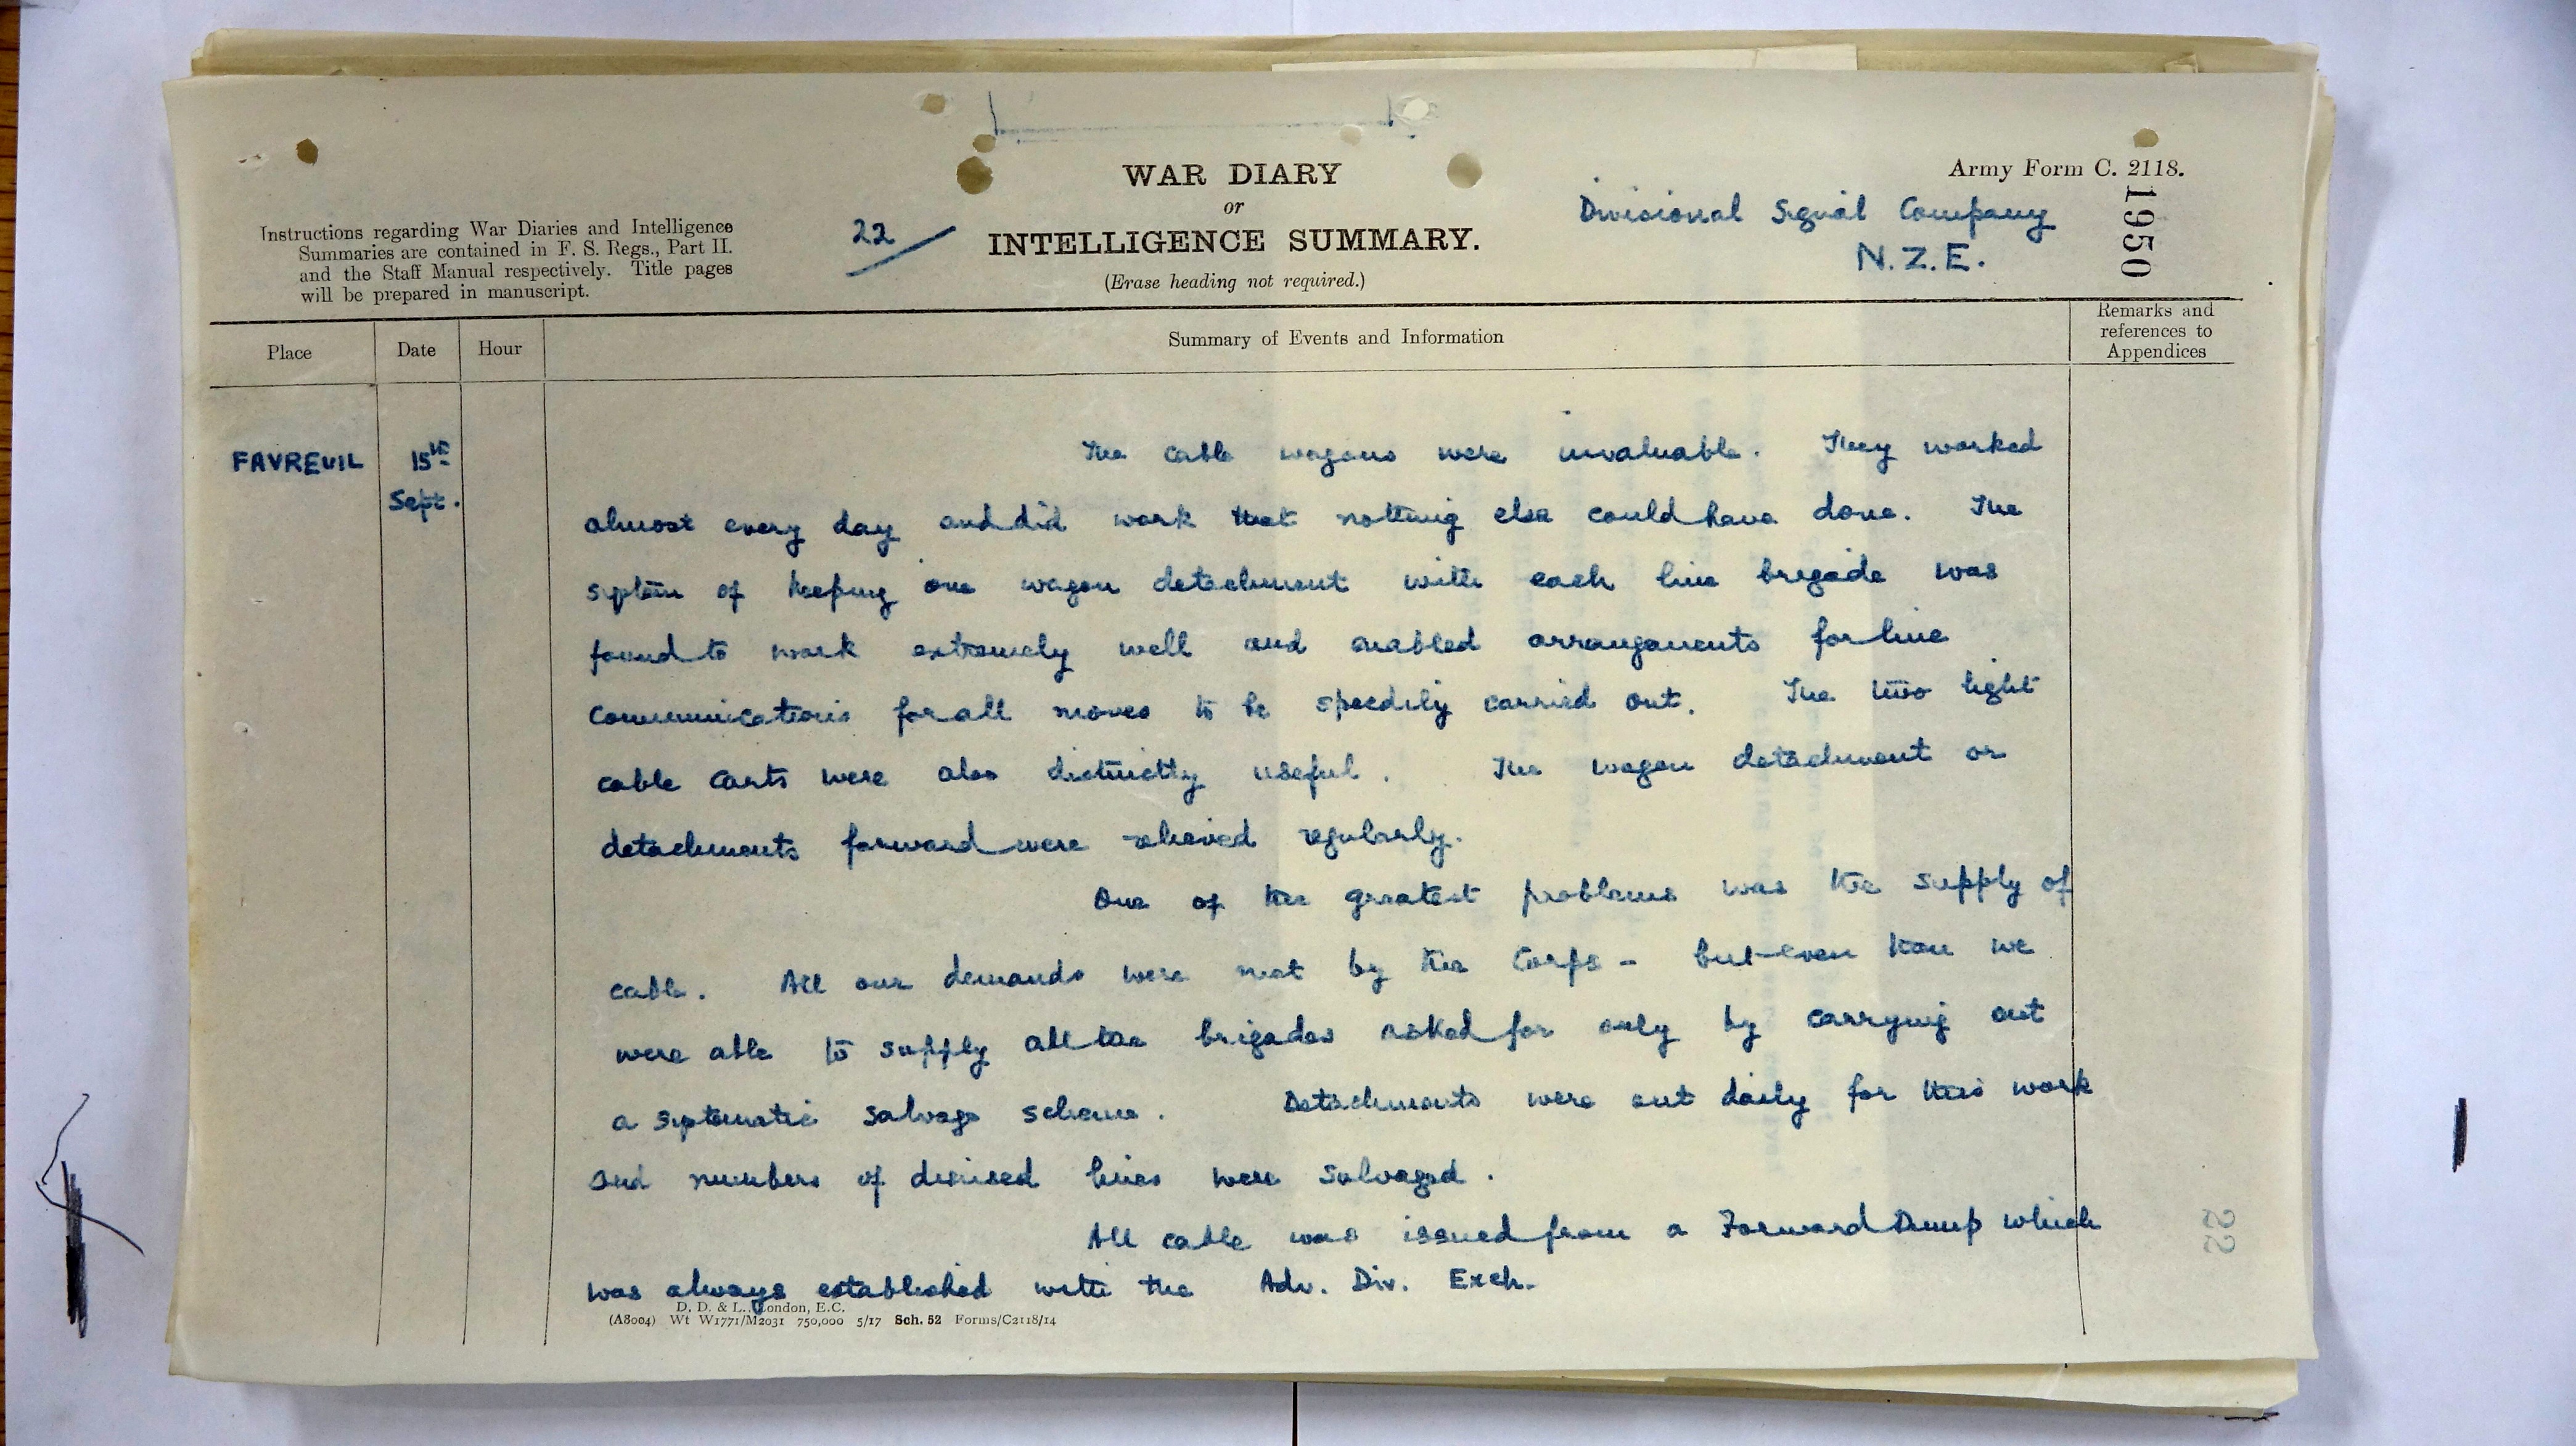 WAR DIARY
or
INTELLIGENCE SUMMARY.
(Erase heading not required.)
Army Form C. 2118.
1950
Instructions regarding War Diaries and Intelligence
Summaries are contained in F. S. Regs., Part II.
and the Staff Manual respectively. Title pages
will be prepared in manuscript.
22
Divisional Signal Company
N.Z.E.
Place
Date
Hour
Summary of Events and Information
Remarks and
references to
Appendices
FAVREUIL
15th
Sept.
The cable wagons were invaluable. They worked
almost every day and did work that nothing else could have done. The
system of keeping one wagon detachment with each line brigade was
found to work extremely well and enabled arrangements for line
communications for all moves to be speedily carried out. The two light
cable carts were also distinctly useful. The wagon detachment or
detachments forward were relieved regularly.
One of the greatest problems was the supply of
cable. All our demands were met by the Corps - but even then we
were able to supply all the brigades asked for only by carrying out
a systematic salvage scheme. Detachments were out daily for this work
and numbers of disused lines were salvaged.
All cable was issued from a Forward Dump which
was always established with the Adv. Div. Exch.
D. D. & L., London, E.C.
(A8004) Wt W1771/M2031 750,000 5/17 Sch. 52 Forms/C2118/14
22